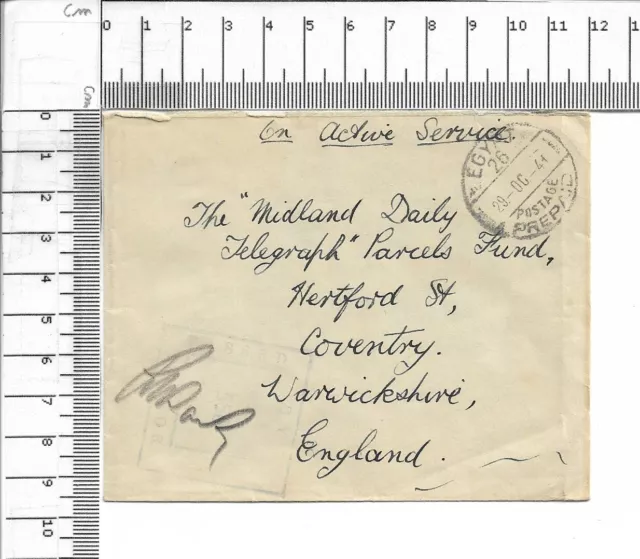 Cm
0 1 2 3 4 5 6 7 8 9 10 11 12 1
Cm
0
1
2
3
4
5
6
7
8
9
10
On Active Service
EGYPT
26
29-OC-41
POSTAGE
PREPAID
The "Midland Daily
Telegraph" Parcels Fund,
Hertford St,
Coventry.
Warwickshire,
England.